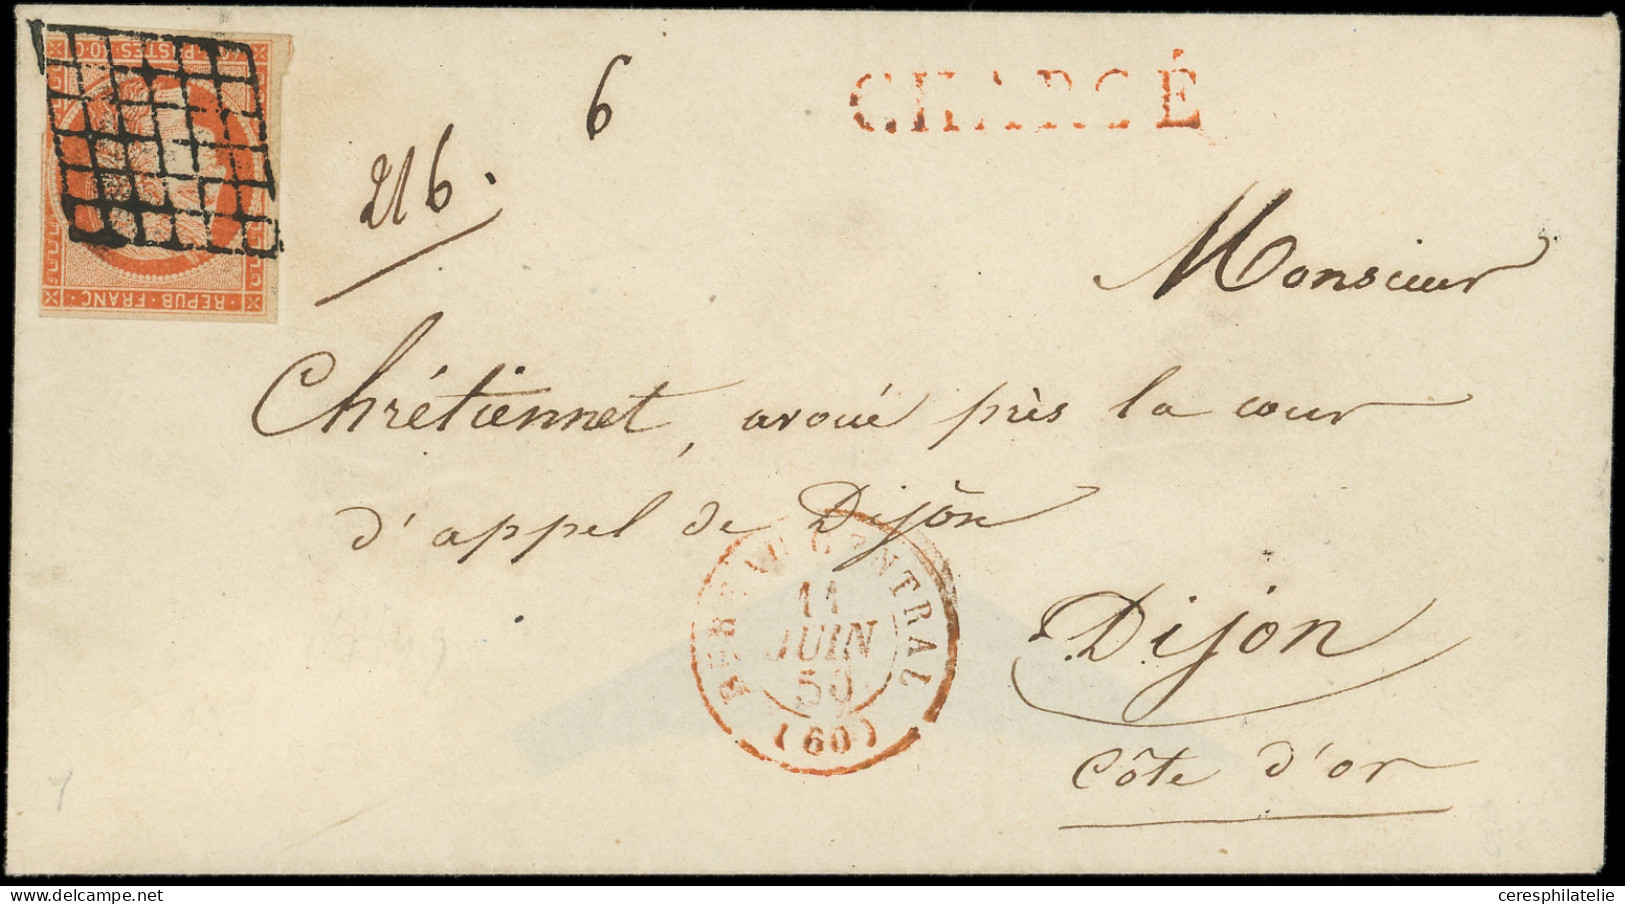 40 · POSTES · 40 · C
REPUB · FRANC ·
6
216.
CHARGÉ
Monsieur
Chrétiennet, avoué près la cour
d'appel de Dijon
Dijon
Côte d'or
BUREAU CENTRAL
11
JUIN
50
(60)
ceresphilatelie